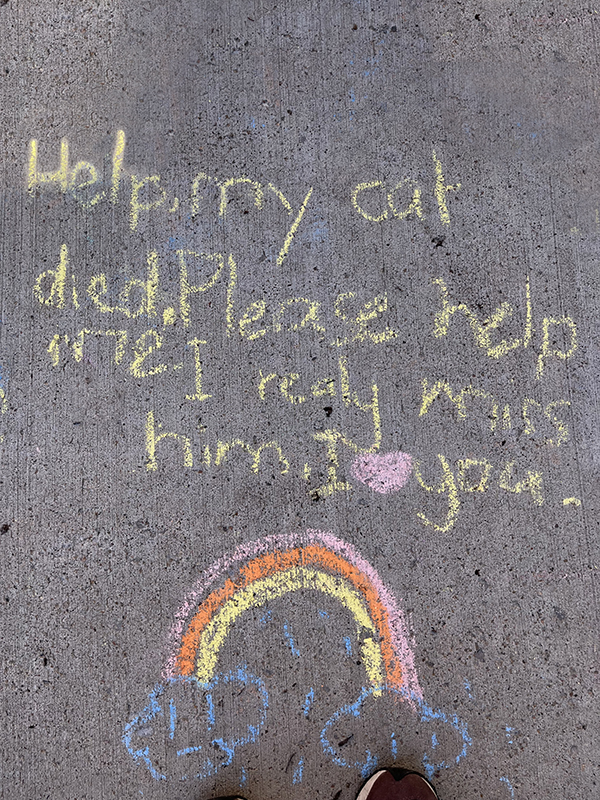 Help, my cat
died. Please help
me. I realy miss
him. I you.